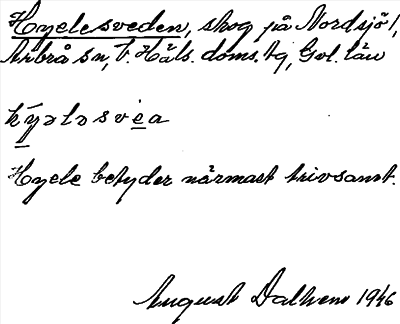 Hyelesveden, skog på Nordsjö!,
Arbrå sn, V. Häls. doms. tg, Gvl. län
hy̆ələsvèa
Hyele betyder närmast trivsamt.
August Dalhem 1946